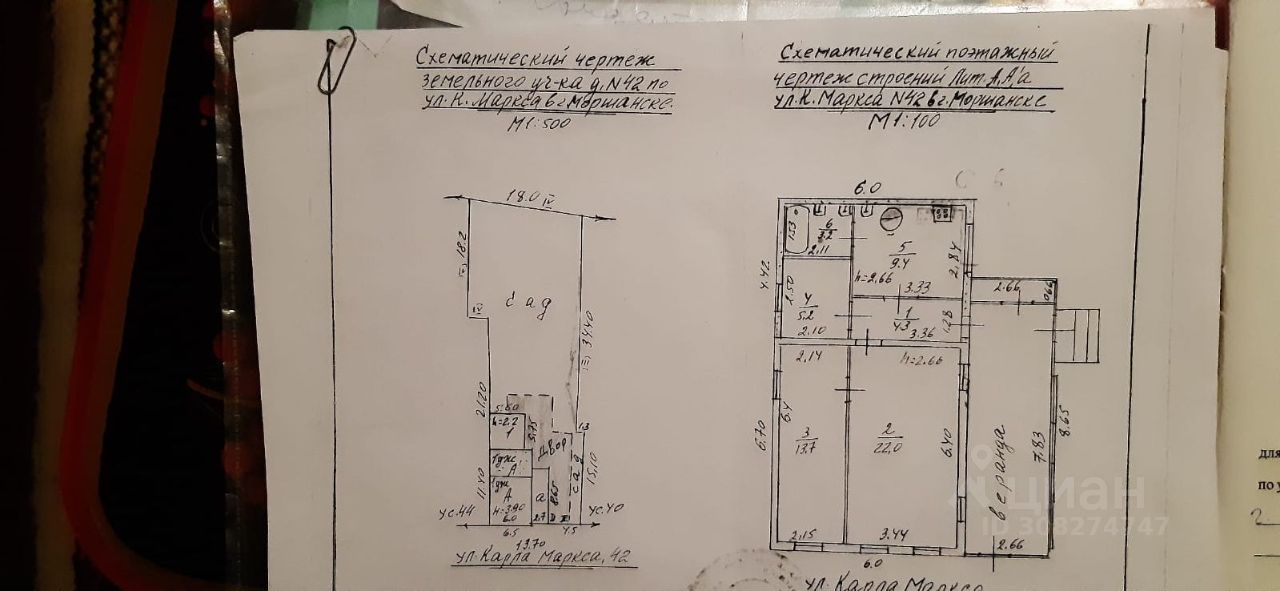 Схематический чертеж
земельного уч-ка д. N42 по
ул. К. Маркса в г. Моршанске.
М 1:500
18.0 IV
18.2
сад
34.40
21.20
5.60
h=2.2
1
5.75
двор
сад
15.10
1эт ж.
А
11.40
А
h=3.90
6.0
а
8.65
2.7
4.5
ус.44
ус.40
6.5
13.70
ул. Карла Маркса, 42
Схематический поэтажный
чертеж строений Лит. А, А'а
ул. К. Маркса N42 в г. Моршанске
М 1:100
6.0
1.53
6
3.2
2.11
5
9.4
2.84
h=2.66
3.33
4.42
2.50
4
5.2
2.10
1
4.3
1.28
3.36
2.66
0.90
2.14
h=2.66
6.70
6.4
3
13.7
2
22.0
6.40
веранда
7.83
8.65
2.15
3.44
2.66
6.0
ул. Карла Маркса
циан
ID 308274747
для
по у
2